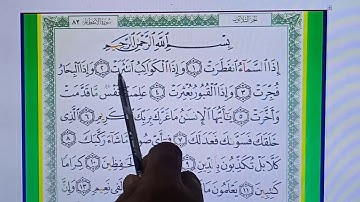 سورة الانفطار ٨٢
الجزء الثلاثون
بسم الله الرحمن الرحيم
إذا السماء انفطرت ١ وإذا الكواكب انتثرت ٢ وإذا البحار
فجرت ٣ وإذا القبور بعثرت ٤ علمت نفس ما قدمت
وأخرت ٥ يأيها الإنسن ما غرك بربك الكريم ٦ الذي
خلقك فسوىك فعدلك ٧ في أي صورة ما شاء ركبك ٨
كلا بل تكذبون بالدين ٩ وإن عليكم لحفظين ١٠ كراما
كتبين ١١ يعلمون ما
لفي نعيم ١٣ وإن